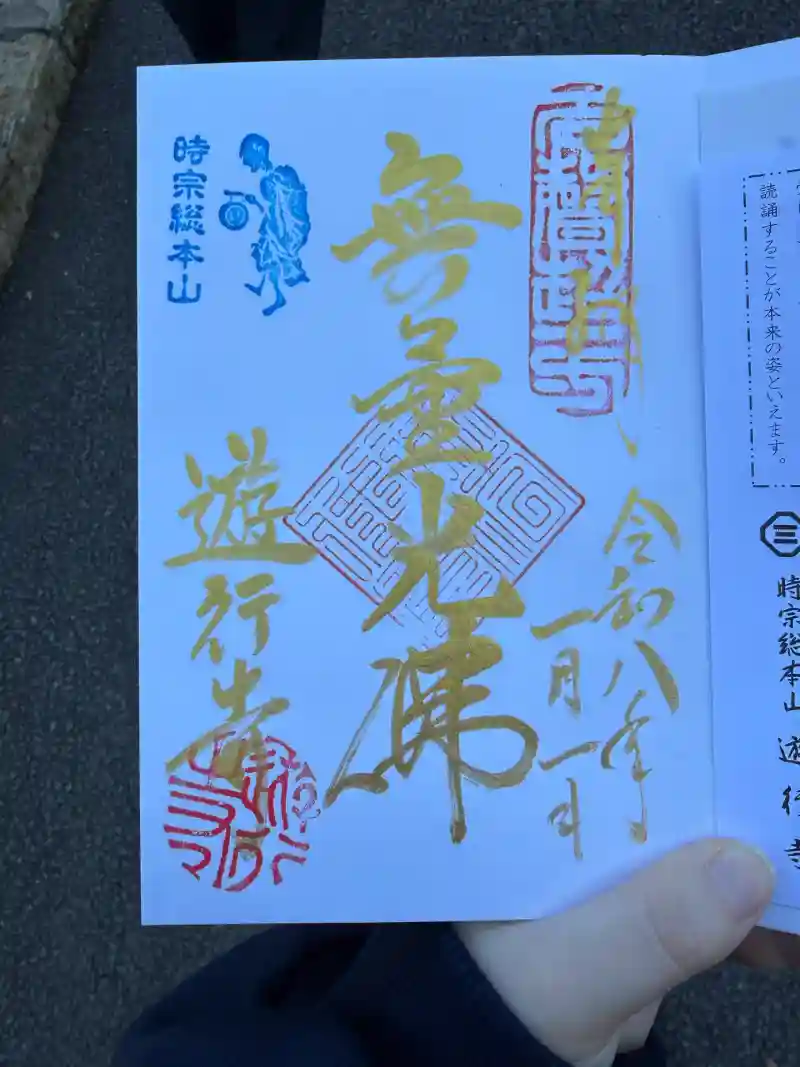 読誦することが本来の姿といえます。
三
時宗総本山 遊行寺
令和八年
一月一日
無量光佛
時宗総本山
遊行寺